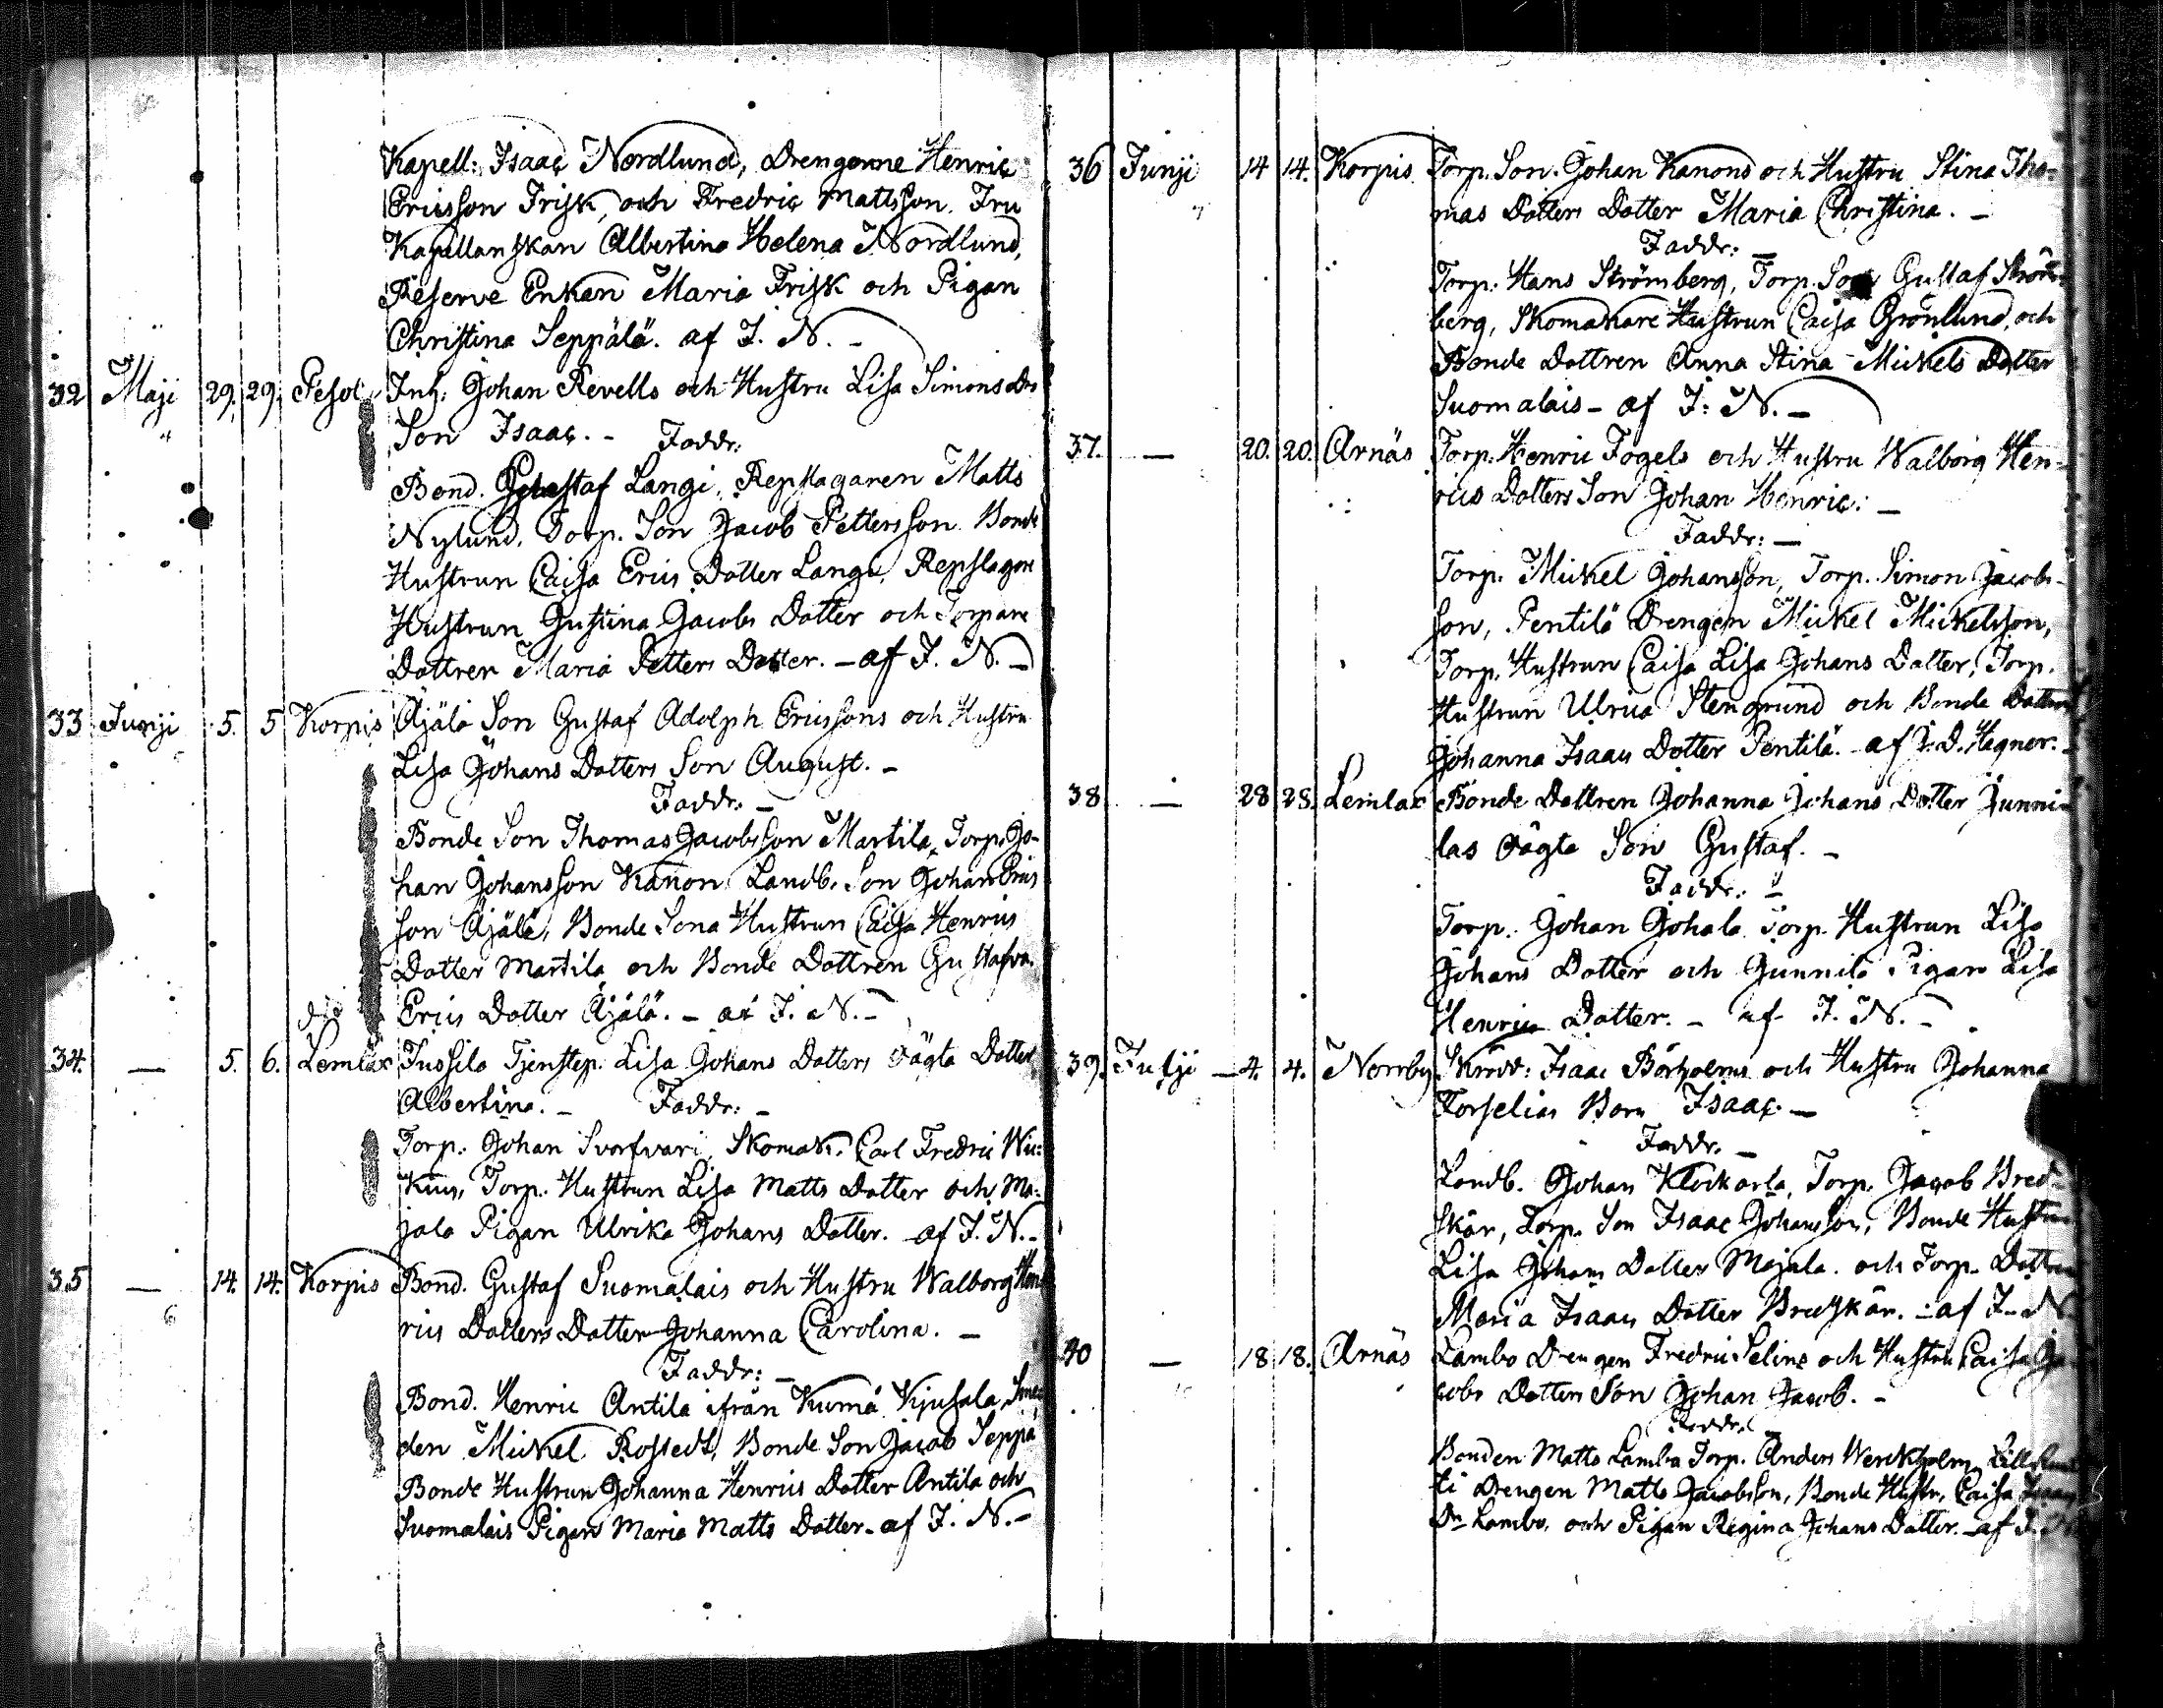 Kapell: Isaac Nordlund, Drengarne Henric
Ericsson Frisk, och Fredric Mattsson. Fru
Kapellanskan Albertina Helena Nordlund,
Reserve Enkan Maria Frisk och Pigan
Christina Seppälä. af I. N. –
32 Maji 29. 29. Pesol Inh: Johan Revells och Hustru Lisa Simons Drs
Son Isaac. – Faddr:
Bond. Gustaf Langi, Repslagaren Matts
Nylund, Torp. Son Jacob Pettersson Bonde
Hustrun Caisa Erics Dotter Langi, Repslagare
Hustrun Gustina Jacobs Dotter och Torpare
Dottren Maria Petters Dotter. – af I. N. –
33 Junji 5. 5 Korpis Äjälä Son Gustaf Adolph Ericssons och Hustru
Lisa Johans Dotters Son August. –
Faddr. –
Bonde Son Thomas Jacobsson Martila, Torp. Jo-
han Johansson Kanon Landb. Son Johan Erics
son Äjälä, Bonde Sona Hustrun Caisa Henrics
Dotter Martila och Bonde Dottren Gustafva
Erics Dotter Äjälä. – af I. N. –
34. — 5. 6. Lemlax Jussila Tjenstep. Lisa Johans Dotters oägta Dotter
Albertina. – Faddr: –
Torp. Johan Svartvari, Skomak. Carl Fredric Wic-
kius, Torp. Hustrun Lisa Matts Dotter och Ma-
jala Pigan Ulrika Johans Dotter. af I. N. –
35 — 14. 14. Korpis Bond. Gustaf Suomalais och Hustru Walborg Hen
rics Dotters Dotter Johanna Carolina. –
Faddr: –
Bond. Henric Antila ifrån Kumå Kjusala, Sme-
den Mickel Rostedt, Bonde Son Jacob Seppä
Bonde Hustrun Johanna Henrics Dotter Antila och
Suomalais Pigan Maria Matts Dotter – af I. N. –
36 Junji 14 14. Korpis Torp. Son Johan Kanons och Hustru Stina Tho-
mas Dotters Dotter Maria Christina. –
Faddr: –
Torp. Hans Strömberg, Torp. Son Gustaf Ström-
berg, Skomakare Hustrun Caisa Grönlund, och
Bonde Dottren Anna Stina Mickels Dotter
Suomalais – af I: N. –
37. — 20. 20. Arnäs Torp. Henric Fogels och Hustru Walborg Hen-
rics Dotters Son Johan Henric: –
Faddr: –
Torp. Mickel Johansson, Torp. Simon Jacobs-
son, Pentilä Drengen Mickel Mickelsson,
Torp. Hustrun Caisa Lisa Johans Dotter, Torp.
Hustrun Ulrica Stengrund och Bonde Dottren
Johanna Isaacs Dotter Pentilä. – af I. D. Hagner. –
38 — 28 28. Lemlax Bonde Dottren Johanna Johans Dotter Junni-
las oägta Son Gustaf. –
Faddr: –
Torp. Johan Johala Torp. Hustrun Lisa
Johans Dotter och Gunnila Pigan Lisa
Henrics Dotter. – af I. N. –
39. Julji 4. 4. Norrby Skrädd: Isaac Börholms och Hustru Johanna
Forselias Barn Isaac. –
Faddr. –
Landb. Johan Klockarla, Torp. Jacob Bred-
skär, Torp. Son Isaac Johansson, Bonde Hustru
Lisa Johans Dotter Majala. och Torp. Dottren
Maria Isaacs Dotter Bredskär. – af I. N
40 — 18 18. Arnäs Lambo Drengen Fredric Selins och Hustru Caisa Ja
cobs Dotters Son Johan Jacob. –
Faddr.
Bonden Matts Lamba Torp. Anders Werckholm,
ti Drengen Matts Jacobsson, Bonde Hustr. Caisa Isaacs
Dr Lambo, och Pigan Regina Johans Dotter. – af I. N